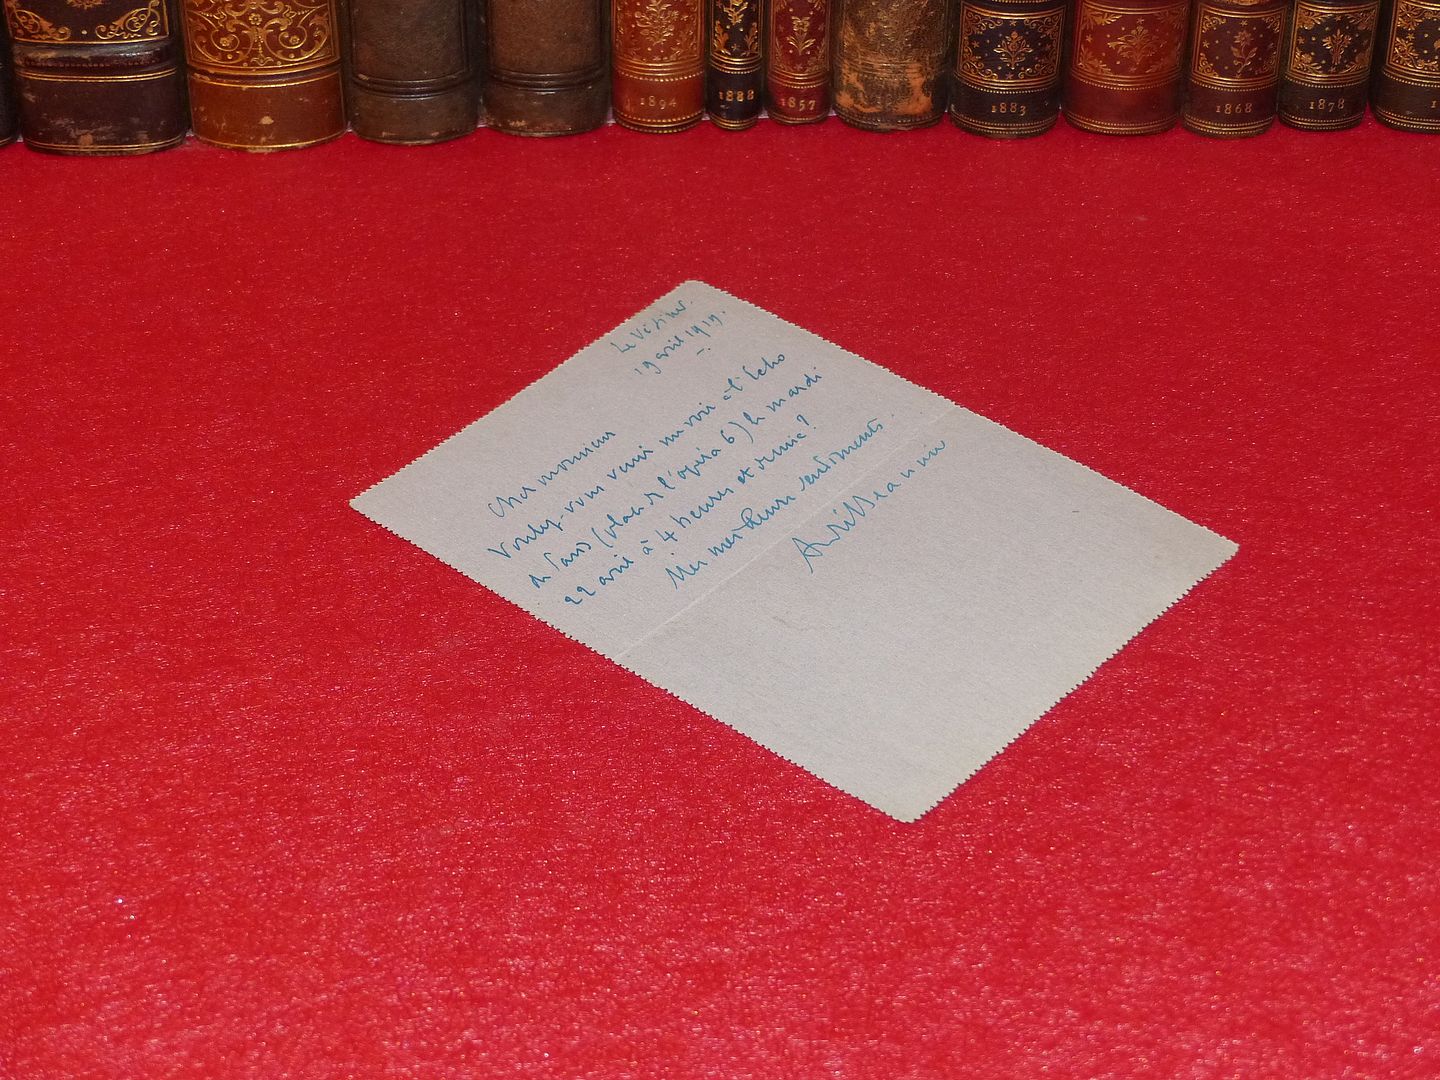 1894
1888
1857
1883
1868
1878
Le Vésinet.
19 avril 1919.
Cher monsieur
Voulez-vous venir me voir à l'Echo
de Paris (place de l'opéra 6) le mardi
22 avril à 4 heures et demie?
Mes meilleurs sentiments.
André Beaunier